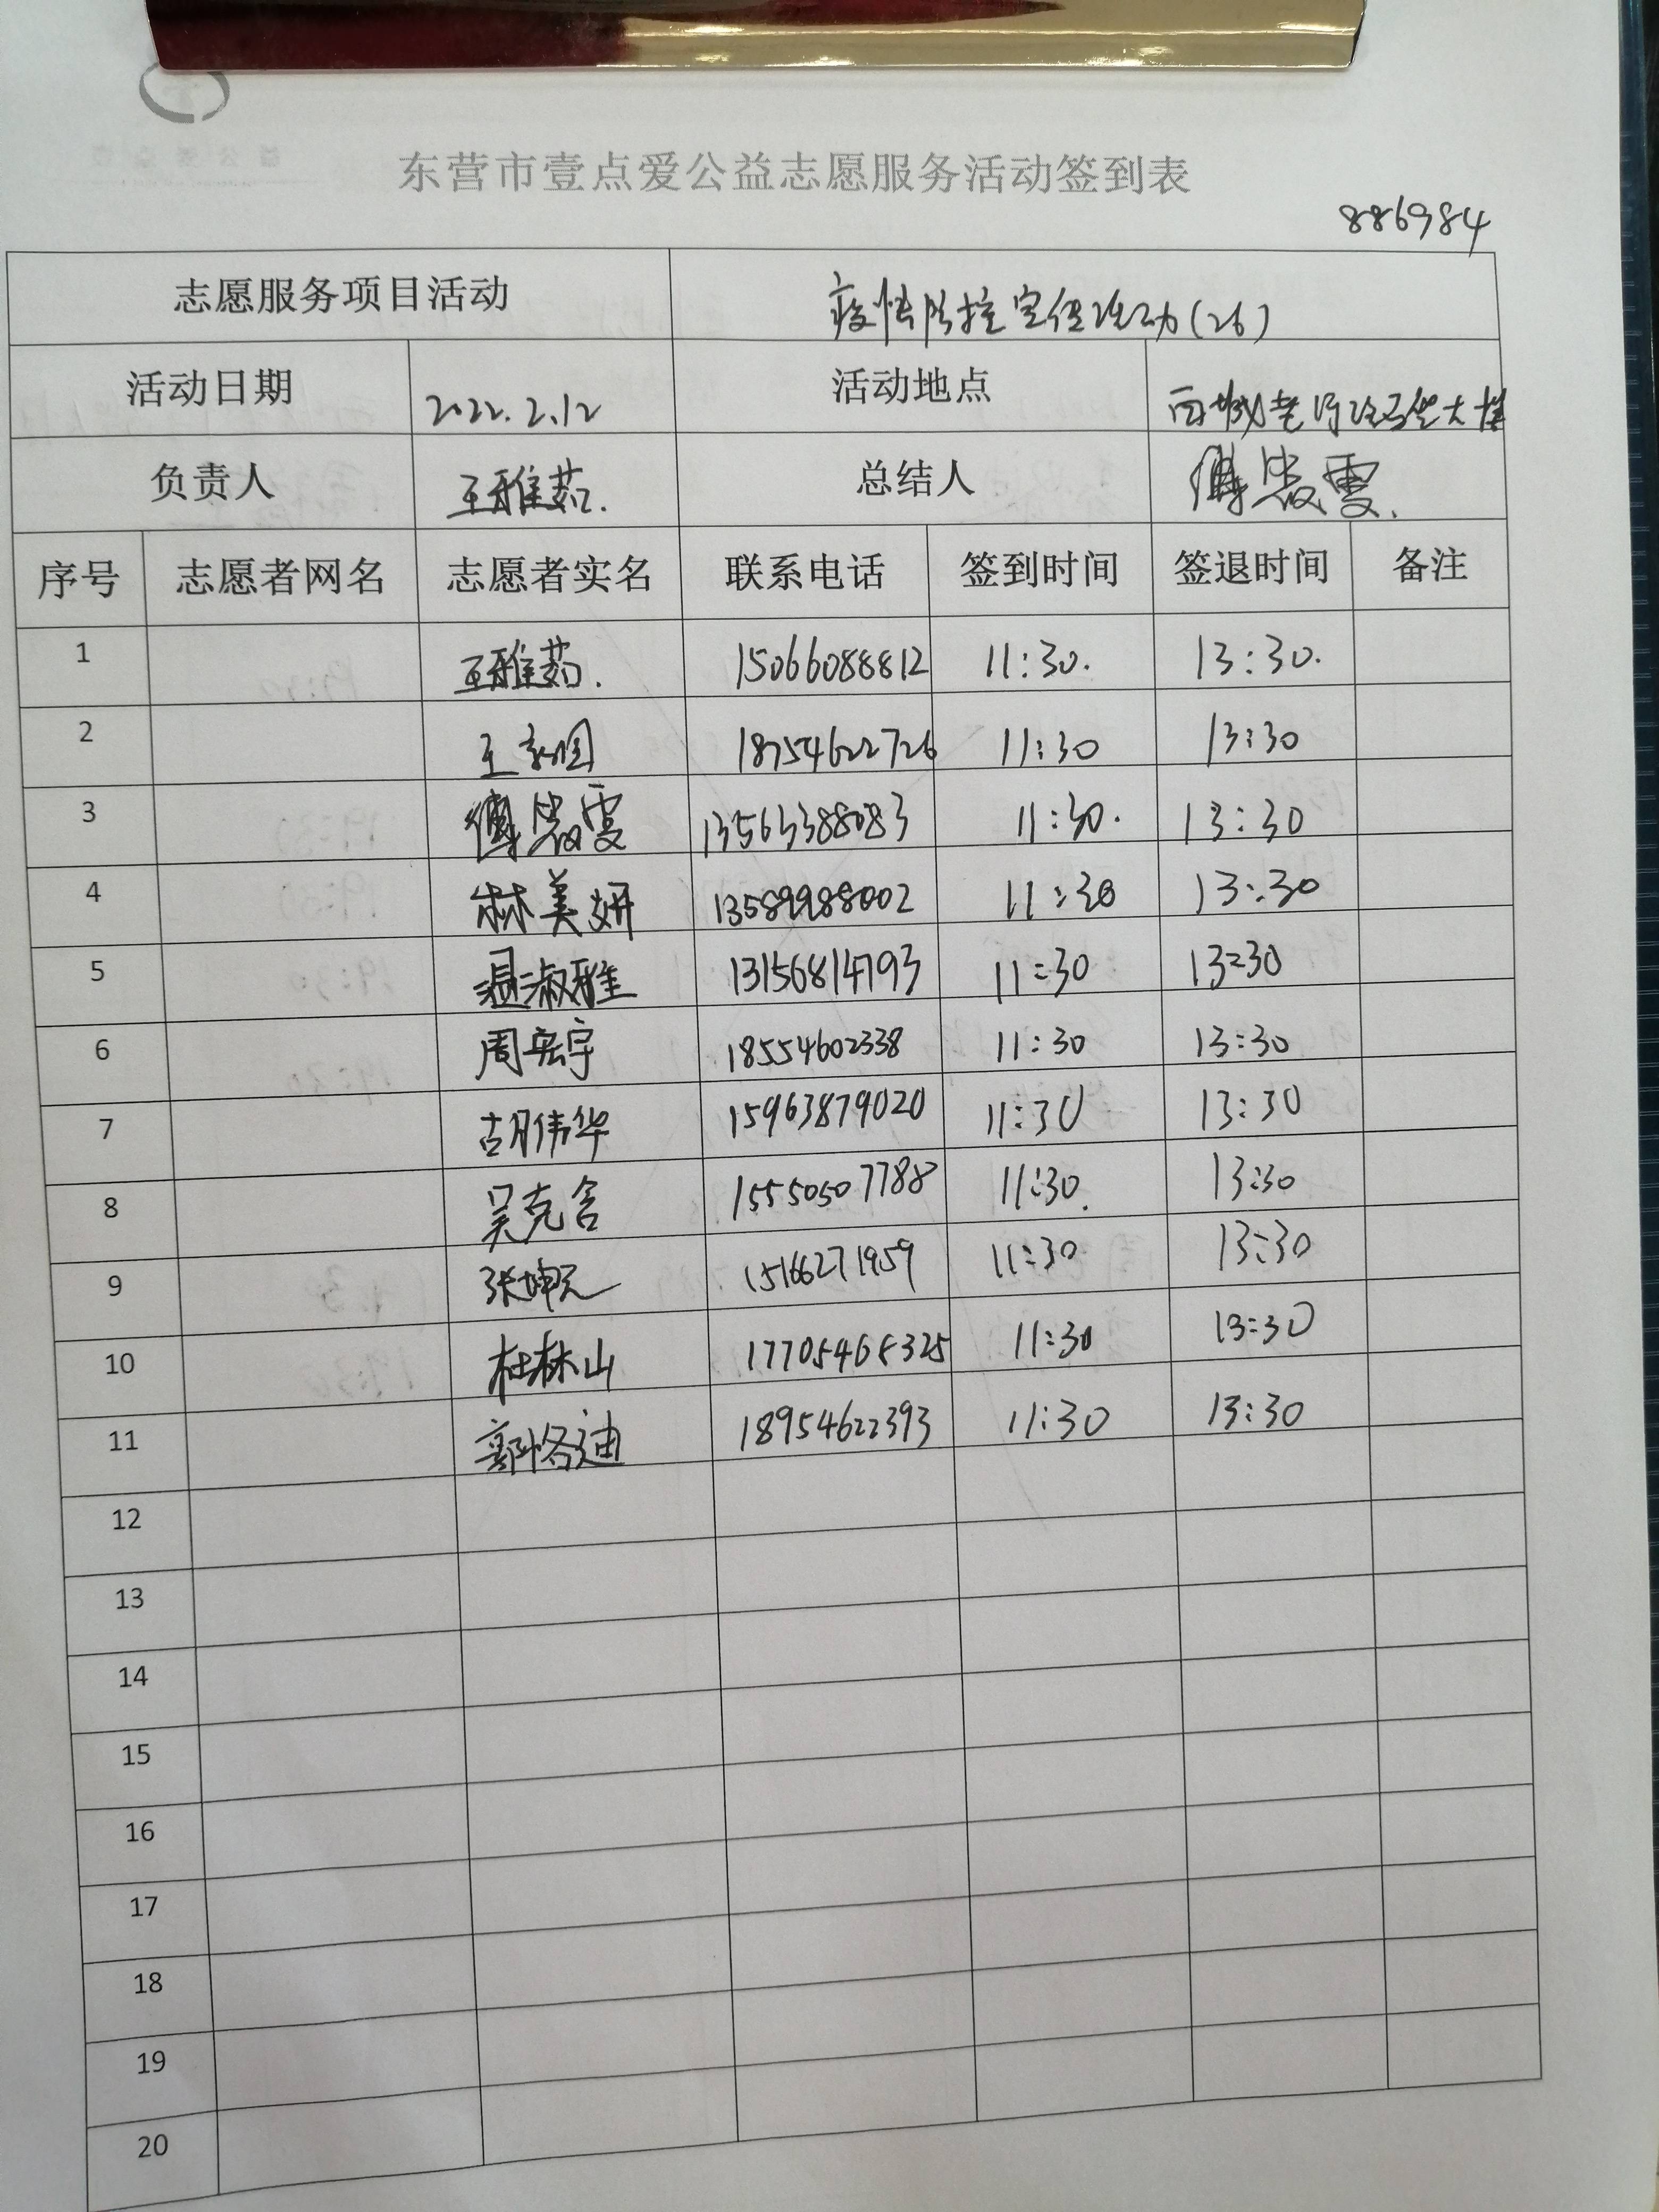 东营市壹点爱公益志愿服务活动签到表
886984
志愿服务项目活动 疫情防控宣传活动(26)
活动日期 2022.2.12 活动地点 西城
负责人 王雅茹. 总结人 傅雯.
序号 志愿者网名 志愿者实名 联系电话 签到时间 签退时间 备注
1 王雅茹. 15066088812 11:30. 13:30.
2 王 18754622726 11:30 13:30
3 傅雯 13563388083 11:30. 13:30
4 林美妍 13589988002 11:30 13:30
5 温淑雅 13156814793 11:30 13:30
6 周宏宇 18554602338 11:30 13:30
7 胡伟华 15963879020 11:30 13:30
8 吴克含 15550507788 11:30. 13:30
9 张坤元 15166271959 11:30 13:30
10 杜林山 17705468325 11:30 13:30
11 郭恪迪 18954622393 11:30 13:30
12
13
14
15
16
17
18
19
20